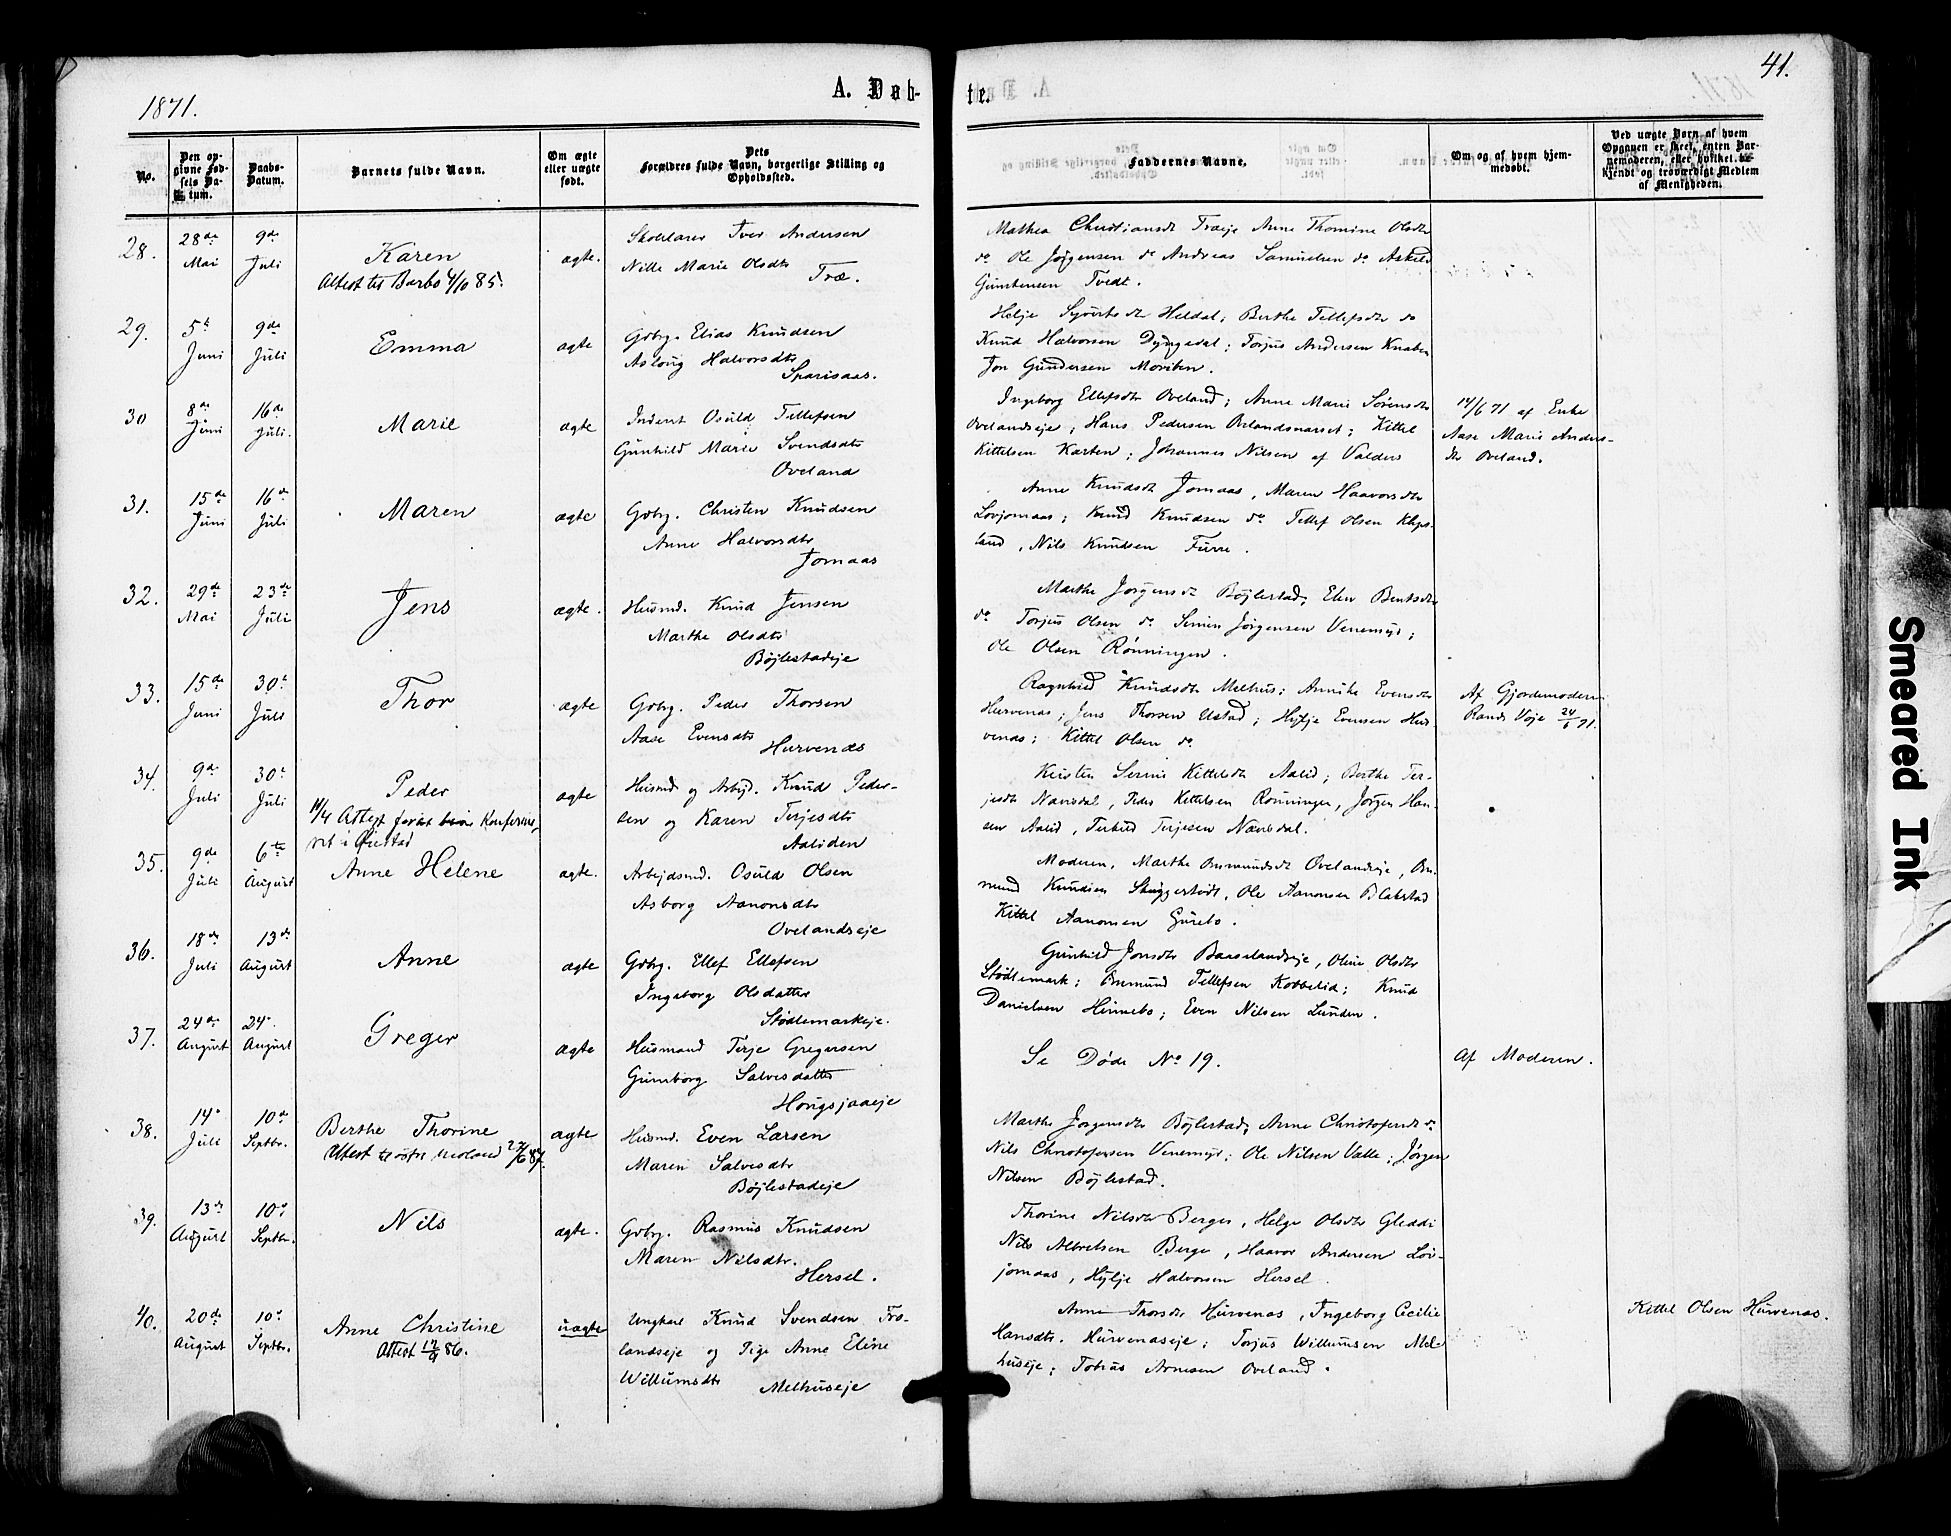 1871.
A. Døb-
te.
41.
No.
Den op-
givne Fød-
sels Da-
tum.
Daabs-
Datum.
Barnets fulde Navn.
Om ægte
eller uægte
født.
Dets
Forældres fulde Navn, borgerlige Stilling og
Opholdssted.
Faddernes Navne.
Om og af hvem hjem-
medøbt.
Ved uægte Børn af hvem
Opgaven er skeet, enten Bar-
nemoderen, eller hvilket be-
kjendt og troværdigt Medlem
af Menigheden.
28.
28de
Mai
9de
Juli
Karen
Attest til Barbo 4/10 85.
ægte.
Skolelærer Iver Andersen
Nille Marie Olsdtr
Træ.
Mathea Christiansdt Træeje Anne Thomine Olsdtr
do Ole Jørgensen do Andreas Samuelsen do Askild
Gunstensen Tvedt.
29.
5t
Juni
9de
Juli
Emma
ægte
Gdbrg. Elias Knudsen
Aslaug Halvorsdtr
Sparisaas.
Helje Sjurtsdtr Heldal; Berthe Tellefsdtr do
Knud Halvorsen Dyngedal; Torjus Andersen Knaben
Jon Gundersen Moviken.
30
8de
Juni
16de
Juli.
Marie
ægte
Inderst Osuld Tellefsen
Gunhild Marie Svendsdtr
Oveland
Ingeborg Ellefsdtr Oveland; Anne Marie Sørensdtr
Ovelandseje; Hans Pedersen Ovelandsnæset; Kittel
Kittelsen Karten; Johannes Nilsen af Valders
14/6 71 af Enke
Aase Marie Anders-
dtr Oveland.
31.
15de
Juni
16de
Juli
Maren
ægte
Gdbrg. Christen Knudsen
Anne Halvorsdtr
Jomaas
Anne Knudsdt Jomaas, Maren Haavorsdtr
Lovjomaas; Knud Knudsen do Tellef Olsen Kleps-
land, Nils Knudsen Furre.
32.
29de
Mai
23de
Juli
Jens
ægte.
Husmd. Knud Jensen
Marthe Olsdtr
Bøjlestadeje
Marthe Jørgensdt Bøjlestad; Elen Bentsdtr
do Torjus Olsen do Søren Jørgensen Venemyr;
Ole Olsen Rønningen.
33.
15de
Juni
30t
Juli
Thor
ægte
Gdbrg. Peder Thorsen
Aase Evensdtr
Hurvenæs
Ragnhild Knudsdtr Melhus; Annike Evensdtr
Hurvenæs; Jens Thorsen Ustad; Hylje Evensen Hur-
venæs; Kittel Olsen do
Af Gjordemoderen
Randi Voje 24/6 71.
34.
9de
Juli
30t
Juli
Peder
11/4 Attest for at blive Konfirme-
ret i Øiestad
ægte
Husmd og Arbjd. Knud Peder-
sen og Karen Terjesdtr
Aaliden
Kirsten Serine Kittelsdt Aalid; Berthe Ter-
jesdtr Nævesdal, Peder Kittelsen Rønningen, Jørgen Han-
sen Aalid, Terkild Terjesen Nævesdal.
35.
9de
Juli
6te
August
Anne Helene
ægte.
Arbejdsmd. Osuld Olsen
Asborg Aanonsdtr
Ovelandseje
Moderen, Marthe Omundsdt Ovelandseje, Om-
mund Knudsen Skyggestedt, Ole Aanonsen Blakstad
Kittel Aanonsen Gurebo.
36.
18de
Juli
13de
August
Anne
ægte
Gdbrg. Ellef Ellefsen
Ingeborg Olsdatter
Stødlemarkeje.
Gunhild Jonsdtr Baaselandseje, Oline Olsdtr
Stødlemark; Omund Tellefsen Kobbelid; Knud
Danielsen Hinnebo; Even Nilsen Lunden.
37.
24de
August
24.
August
Greger
ægte
Husmand Terje Gregersen
Gunborg Salvesdatter
Hougsjaaeje
Se Døde No 19.
Af Moderen.
38.
14
Juli
10de
Septbr.
Berthe Thorine
Attest til østre Moland 23/6 87.
ægte
Husmd. Even Larsen
Maren Salvesdtr
Bøjlestadeje
Marthe Jørgensdtr Bøjlestad; Anne Christofersdt do
Nils Christofersen Venemyr; Ole Nilsen Valle; Jørgen
Nilsen Bøjlestad.
39.
13de
August
10de
Septbr.
Nils
ægte.
Gdbrg. Rasmus Knudsen
Maren Nilsdtr.
Hersel.
Thorine Nilsdtr Berge, Helge Olsdtr Gleddi
Nils Albretsen Berge, Haavor Andersen Lov-
jomaas, Hylje Halvorsen Hersel.
40.
20de
August
10de
Septbr.
Anne Christine
Attest 12/9 86.
uægte
Ungkarl Knud Svendsen Fro-
landseje og Pige Anne Eline
Willumsdtr Melhuseje
Anne Thorsdtr Hurvenæs, Ingeborg Cecilie
Hansdtr. Hurvenæseje; Torjus Willumsen Mel-
huseje; Tobias Arnesen Oveland.
Kittel Olsen Hurvenæs.
Smeared Ink